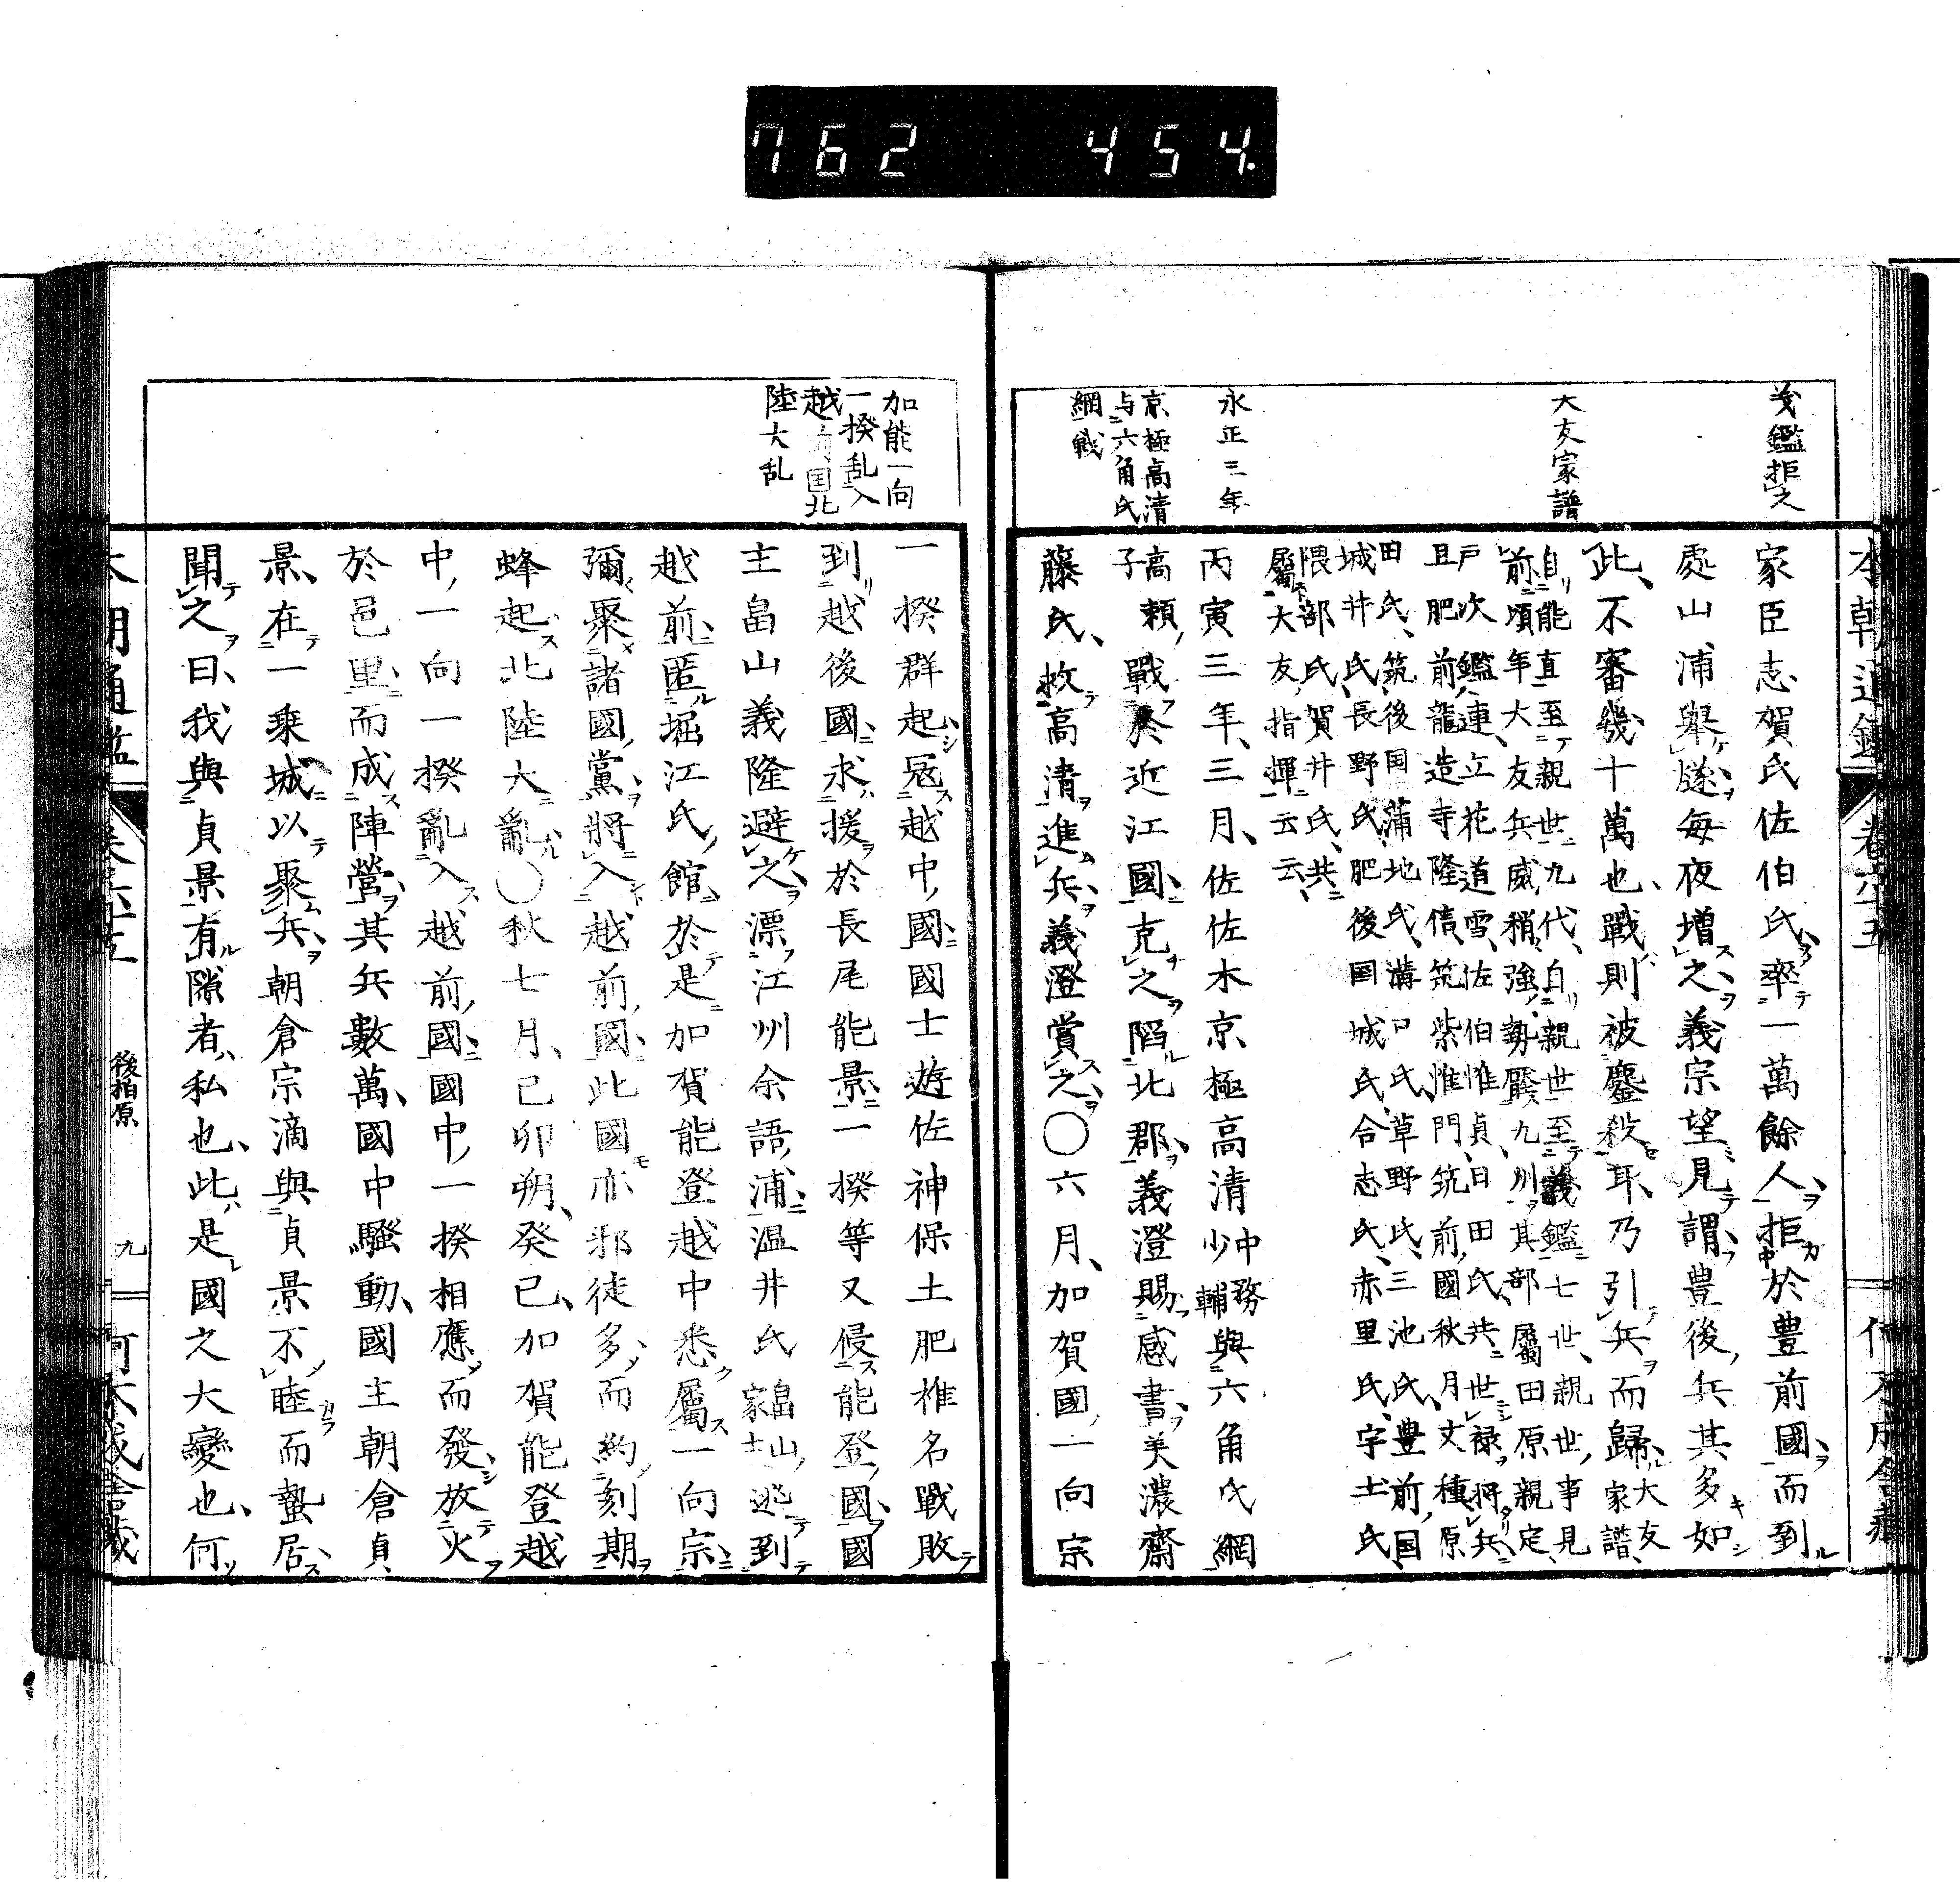 762 454
本朝通鑑 卷六十五
義鑑拒之
大友家譜
永正三年
京極高清
与六角氏
綱戦
家臣志賀氏佐伯氏率一萬餘人拒於豊前國而到
處山浦舉燧毎夜増之義宗望見謂豊後兵其多如
此不審幾十萬也戰則被鏖殺耳乃引兵而歸大友
家譜
自能直至親世九代自親世至義鑑七世親世事見
前頃年大友兵威稍強勢壓九州其部屬田原親定
戸次鑑連立花道雪佐伯惟貞日田氏共世禄將兵
且肥前龍造寺隆信筑紫惟門筑前國秋月文種原
田氏筑後国蒲地氏溝口氏草野氏三池氏豊前国
城井氏長野氏肥後国城氏合志氏赤里氏宇土氏
隈部氏賀井氏共
屬大友指揮云云
丙寅三年三月佐佐木京極高清中務少輔與六角氏綱
高頼子戰於近江國克之陷北郡義澄賜感書美濃齋
藤氏救高清進兵義澄賞之〇六月加賀國一向宗
加能一向
一揆乱入
越 国北
陸大乱
一揆群起冦越中國國士遊佐神保土肥椎名戰敗
到越後國求援於長尾能景一揆等又侵能登國國
主畠山義隆避之漂江州余語浦温井氏畠山家士逃到
越前匿堀江氏館於是加賀能登越中悉屬一向宗
彌聚諸國黨將入越前國此國亦邪徒多而約刻期
蜂起北陸大亂〇秋七月己卯朔癸巳加賀能登越
中一向一揆亂入越前國國中一揆相應而發放火
於邑里而成陣營其兵數萬國中騷動國主朝倉貞
景在一乗城以聚兵朝倉宗滴與貞景不睦而蟄居
聞之曰我與貞景有隙者私也此是國之大變也何
本朝通鑑 卷六十五 後柏原 九